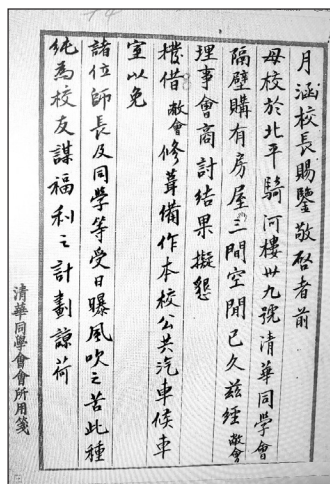 月涵校長賜鑒敬啓者前
母校於北平騎河樓卅九號清華同學會
隔壁購有房屋三間空閒已久茲經敝會
理事會商討結果擬懇
撥借敝會修葺備作本校公共汽車候車
室以免
諸位師長及同學等受日曝風吹之苦此種
純為校友謀福利之計劃諒荷
清華同學會會所用箋